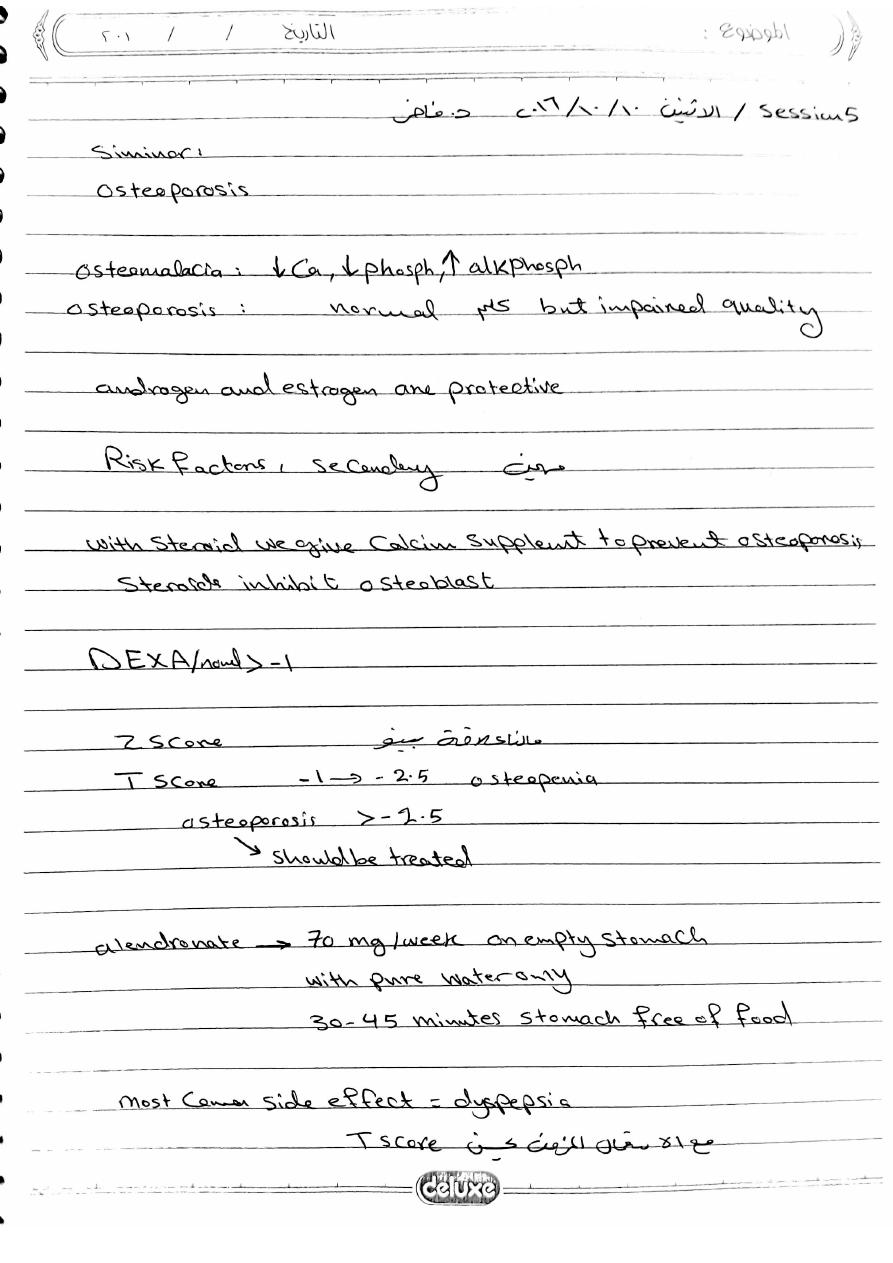 الموضوع : التاريخ / / ٢٠١
Session5 / الاثنين ٢٠١٦/١٠/١٠ د. فاضل
Siminar:
Osteoporosis
Osteomalacia : ↓Ca, ↓phosph, ↑ alkphosph
osteoporosis : normal but impaired quality
androgen and estrogen are protective
Risk factors, secondary
with Steroid we give Calcim Supplemt to prevent osteoporosis
Steroids inhibit osteoblast
DEXA/normal > -1
Z score
T score -1 → -2.5 osteopenia
osteoporosis > -2.5
↘ should be treated
alendronate → 70 mg/week on empty stomach
with pure water only
30-45 minutes stomach free of food
most common side effect = dyspepsia
T score
deluxe